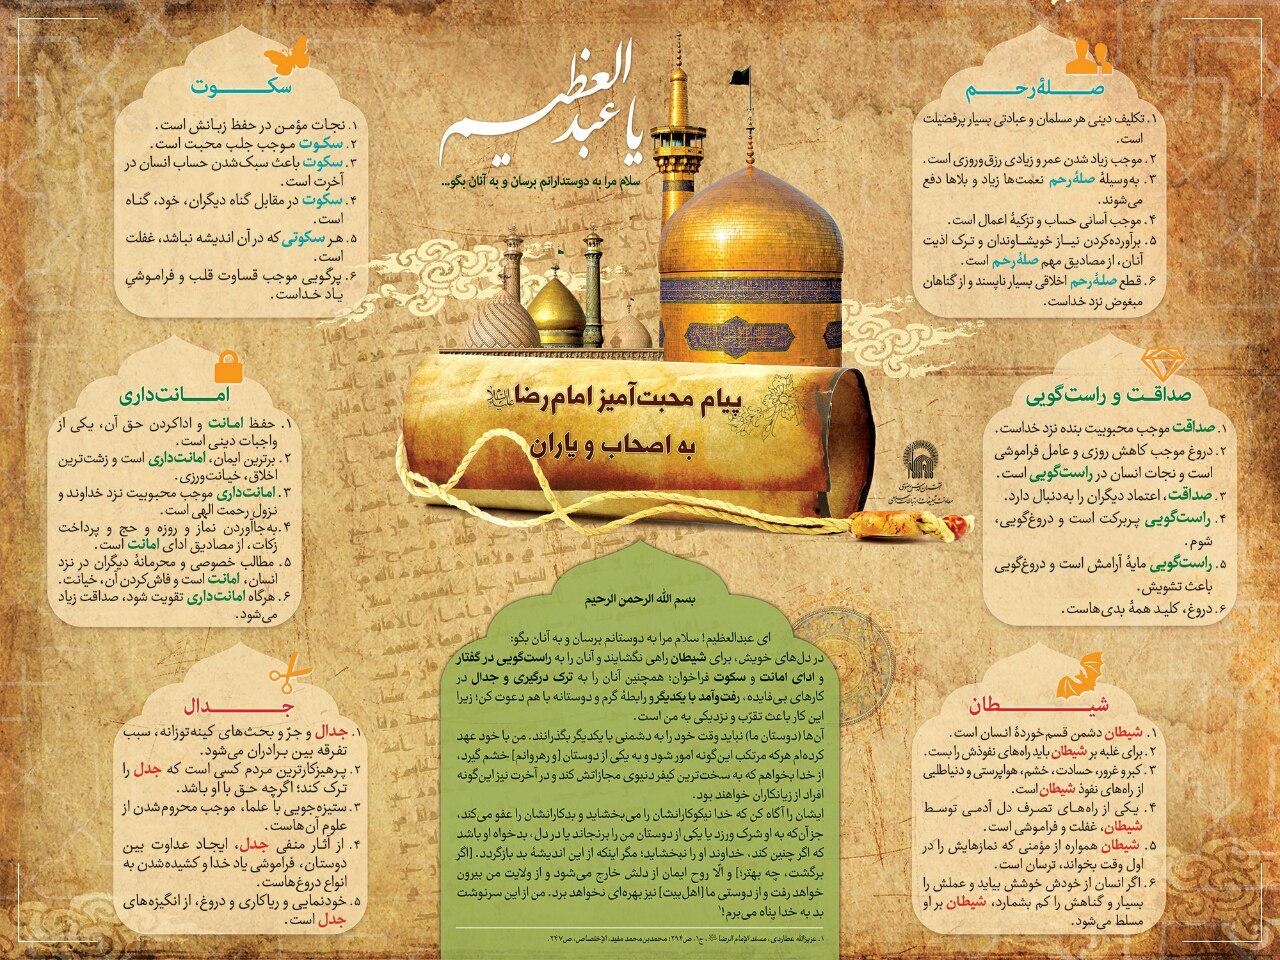 یا عبدالعظیم
سلام مرا به دوستدارانم برسان و به آنان بگو...
پیام محبت‌آمیز امام رضا
به اصحاب و یاران
صلهٔ رحم
۱. تکلیف دینی هر مسلمان و عبادتی بسیار پرفضیلت
است.
۲. موجب زیاد شدن عمر و زیادی رزق‌وروزی است.
۳. به‌وسیلهٔ صلهٔ‌رحم نعمت‌ها زیاد و بلاها دفع
می‌شوند.
۴. موجب آسانی حساب و تزکیهٔ اعمال است.
۵. برآورده‌کردن نیاز خویشاوندان و ترک اذیت
آنان، از مصادیق مهم صلهٔ‌رحم است.
۶. قطع صلهٔ‌رحم اخلاقی بسیار ناپسند و از گناهان
مبغوض نزد خداست.
صداقت و راست‌گویی
۱. صداقت موجب محبوبیت بنده نزد خداست.
۲. دروغ موجب کاهش روزی و عامل فراموشی
است و نجات انسان در راست‌گویی است.
۳. صداقت، اعتماد دیگران را به‌دنبال دارد.
۴. راست‌گویی پربرکت است و دروغ‌گویی،
شوم.
۵. راست‌گویی مایهٔ آرامش است و دروغ‌گویی
باعث تشویش.
۶. دروغ، کلید همهٔ بدی‌هاست.
شیطان
۱. شیطان دشمن قسم‌خوردهٔ انسان است.
۲. برای غلبه بر شیطان باید راه‌های نفوذش را بست.
۳. کبر و غرور، حسادت، خشم، هواپرستی و دنیاطلبی
از راه‌های نفوذ شیطان است.
۴. یکی از راه‌های تصرف دل آدمی توسط
شیطان، غفلت و فراموشی است.
۵. شیطان همواره از مؤمنی که نمازهایش را در
اول وقت بخواند، ترسان است.
۶. اگر انسان از خودش خوشش بیاید و عملش را
بسیار و گناهش را کم بشمارد، شیطان بر او
مسلط می‌شود.
سکوت
۱. نجات مؤمن در حفظ زبانش است.
۲. سکوت موجب جلب محبت است.
۳. سکوت باعث سبک‌شدن حساب انسان در
آخرت است.
۴. سکوت در مقابل گناه دیگران، خود، گناه
است.
۵. هر سکوتی که در آن اندیشه نباشد، غفلت
است.
۶. پرگویی موجب قساوت قلب و فراموشیِ
یاد خداست.
امانت‌داری
۱. حفظ امانت و اداکردن حق آن، یکی از
واجبات دینی است.
۲. برترین ایمان، امانت‌داری است و زشت‌ترین
اخلاق، خیانت‌ورزی.
۳. امانت‌داری موجب محبوبیت نزد خداوند و
نزول رحمت الهی است.
۴. به‌جاآوردن نماز و روزه و حج و پرداخت
زکات، از مصادیق ادای امانت است.
۵. مطالب خصوصی و محرمانهٔ دیگران در نزد
انسان، امانت است و فاش‌کردن آن، خیانت.
۶. هرگاه امانت‌داری تقویت شود، صداقت زیاد
می‌شود.
جدال
۱. جدال و جرّ و بحث‌های کینه‌توزانه، سبب
تفرقه بین برادران می‌شود.
۲. پرهیزکارترین مردم کسی است که جدل را
ترک کند؛ اگرچه حق با او باشد.
۳. ستیزه‌جویی با علما، موجب محروم‌شدن از
علوم آن‌هاست.
۴. از آثار منفی جدل، ایجاد عداوت بین
دوستان، فراموشی یاد خدا و کشیده‌شدن به
انواع دروغ‌هاست.
۵. خودنمایی و ریاکاری و دروغ، از انگیزه‌های
جدل است.
بسم الله الرحمن الرحیم
ای عبدالعظیم! سلام مرا به دوستانم برسان و به آنان بگو:
در دل‌های خویش، برای شیطان راهی نگشایند و آنان را به راست‌گویی در گفتار
و ادای امانت و سکوت فراخوان؛ همچنین آنان را به ترک درگیری و جدال در
کارهای بی‌فایده، رفت‌وآمد با یکدیگر و رابطهٔ گرم و دوستانه با هم دعوت کن؛ زیرا
این کار باعث تقرّب و نزدیکی به من است.
آن‌ها (دوستان ما) نباید وقت خود را به دشمنی با یکدیگر بگذرانند. من با خود عهد
کرده‌ام هرکه مرتکب این‌گونه امور شود و به یکی از دوستان [و رهروانم] خشم گیرد،
از خدا بخواهم که به سخت‌ترین کیفر دنیوی مجازاتش کند و در آخرت نیز این‌گونه
افراد از زیانکاران خواهند بود.
ایشان را آگاه کن که خدا نیکوکارانشان را می‌بخشاید و بدکارانشان را عفو می‌کند،
جز آن‌که به او شرک ورزد یا یکی از دوستان من را برنجاند یا در دل، بدخواه او باشد
که اگر چنین کند، خداوند او را نبخشاید؛ مگر اینکه از این اندیشهٔ بد بازگردد. [اگر
برگشت، چه بهتر؛] و الّا روح ایمان از دلش خارج می‌شود و از ولایت من بیرون
خواهد رفت و از دوستی ما [اهل‌بیت] نیز بهره‌ای نخواهد برد. من از این سرنوشت
بد به خدا پناه می‌برم!¹
۱. عزیزالله عطاردی، مسند الإمام الرضا، ج۱، ص۲۹۴؛ محمدبن‌محمد مفید، الإختصاص، ص۲۴۷.